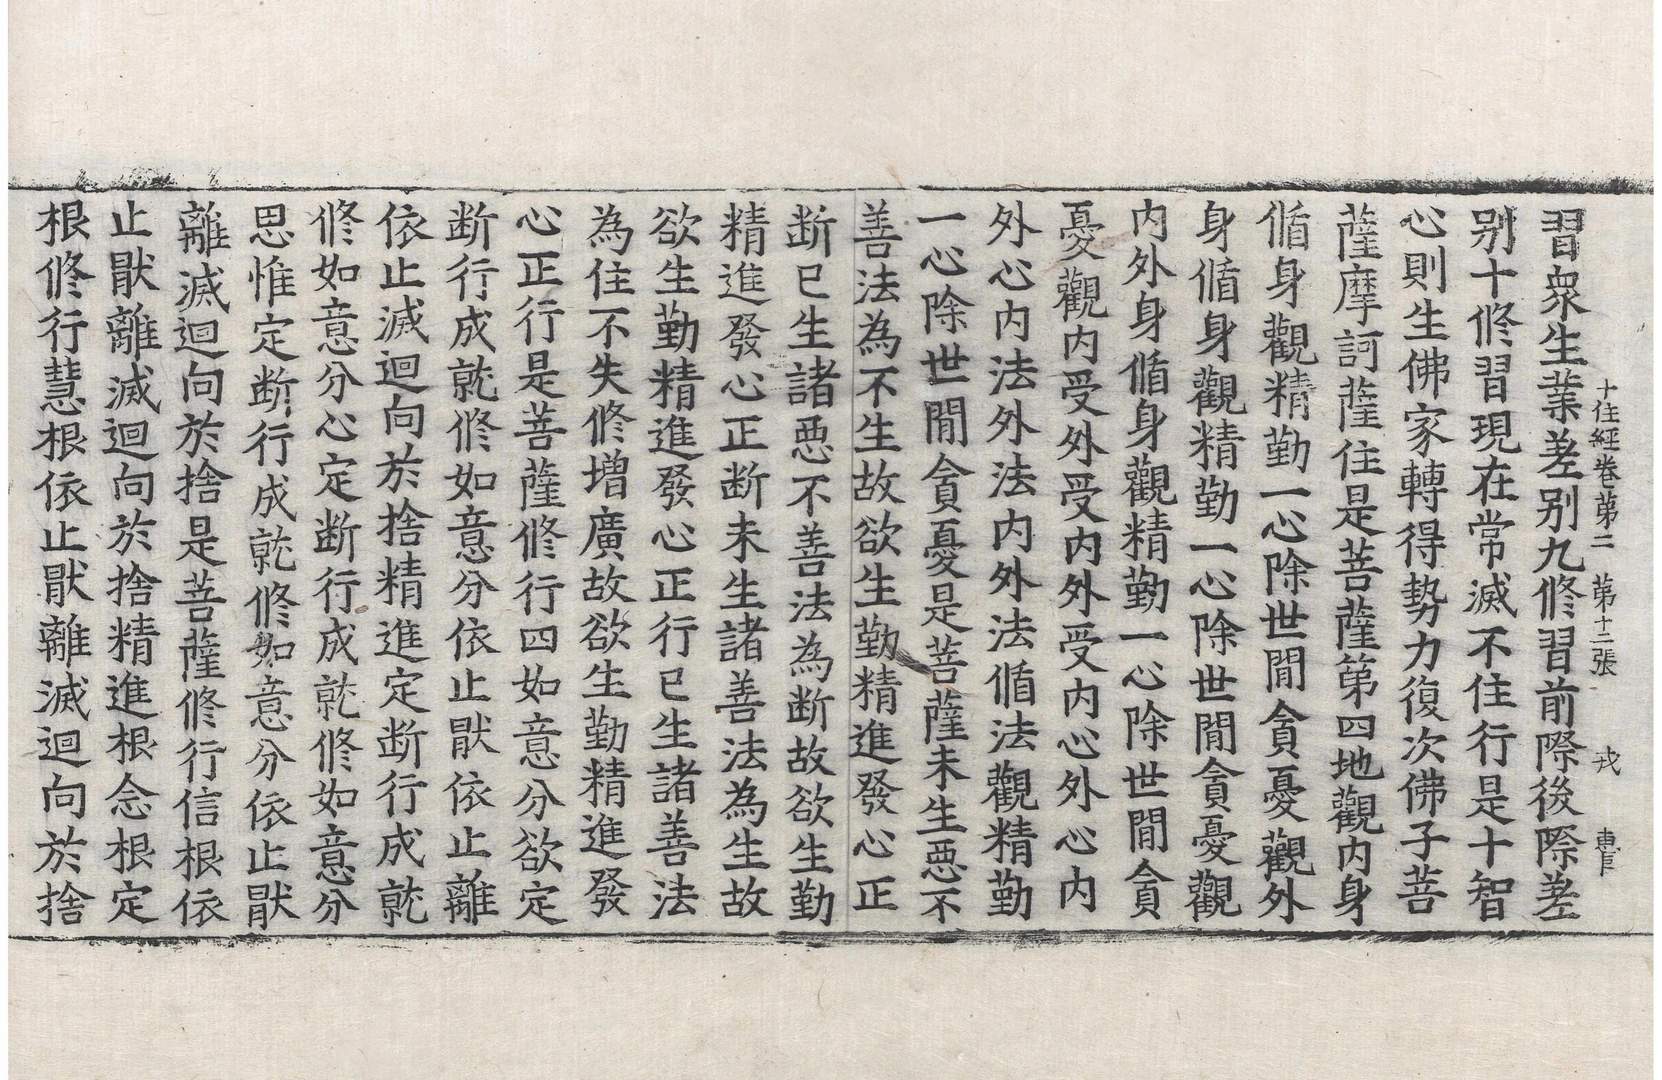 十住經卷第二 第十二張 戎
習衆生業差别九修習前際後際差
别十修習現在常滅不住行是十智
心則生佛家轉得勢力復次佛子菩
薩摩訶薩住是菩薩第四地觀内身
循身觀精勤一心除世閒貪憂觀外
身循身觀精勤一心除世閒貪憂觀
内外身循身觀精勤一心除世閒貪
憂觀内受外受内外受内心外心内
外心内法外法内外法循法觀精勤
一心除世閒貪憂是菩薩未生悪不
善法為不生故欲生勤精進發心正
断已生諸悪不善法為断故欲生勤
精進發心正断未生諸善法為生故
欲生勤精進發心正行已生諸善法
為住不失修增廣故欲生勤精進發
心正行是菩薩修行四如意分欲定
断行成就修如意分依止猒依止離
依止滅迴向於捨精進定断行成就
修如意分心定断行成就修如意分
思惟定断行成就修如意分依止猒
離滅迴向於捨是菩薩修行信根依
止猒離滅迴向於捨精進根念根定
根修行慧根依止猒離滅迴向於捨